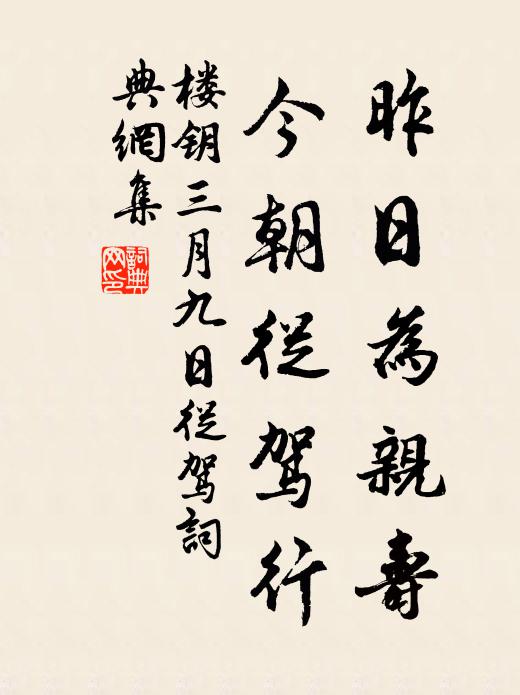 昨日為親壽
今朝從駕行
楼钥三月九日從駕詞
典網集
詞典
网印